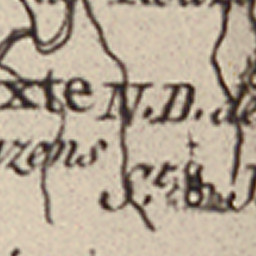 xte N.D. de
zens
S.t J